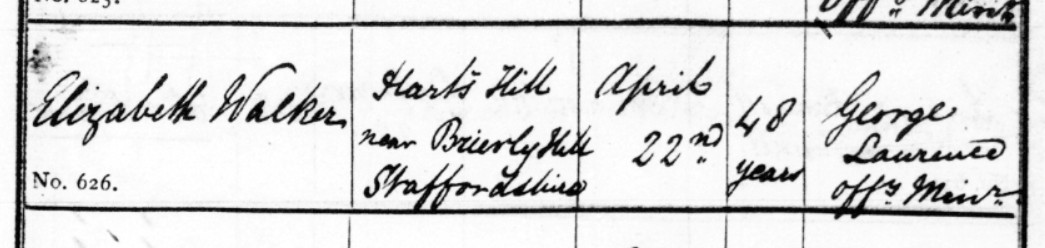 offg Minr
Elizabeth Walker
No. 626.
Hart's Hill
near Brierly Hill
Staffordshire
April
22nd
48
years
George
Laurence
offg Minr